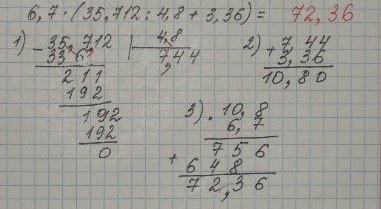 6,7 · (35,712 : 4,8 + 3,36) = 72,36
1) - 35,712 | 4,8
33 6 7,44
2 11
1 92
192
192
0
2) + 7,44
3,36
10,80
3) · 10,8
6,7
+ 7 5 6
6 4 8
7 2, 3 6